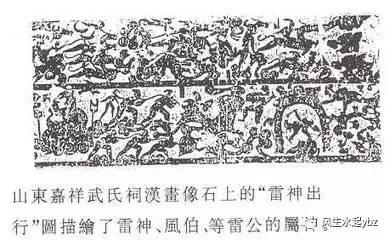 山東嘉祥武氏祠漢畫像石上的“雷神出
行”圖描繪了雷神、風伯、等雷公的屬
风生水起ybz